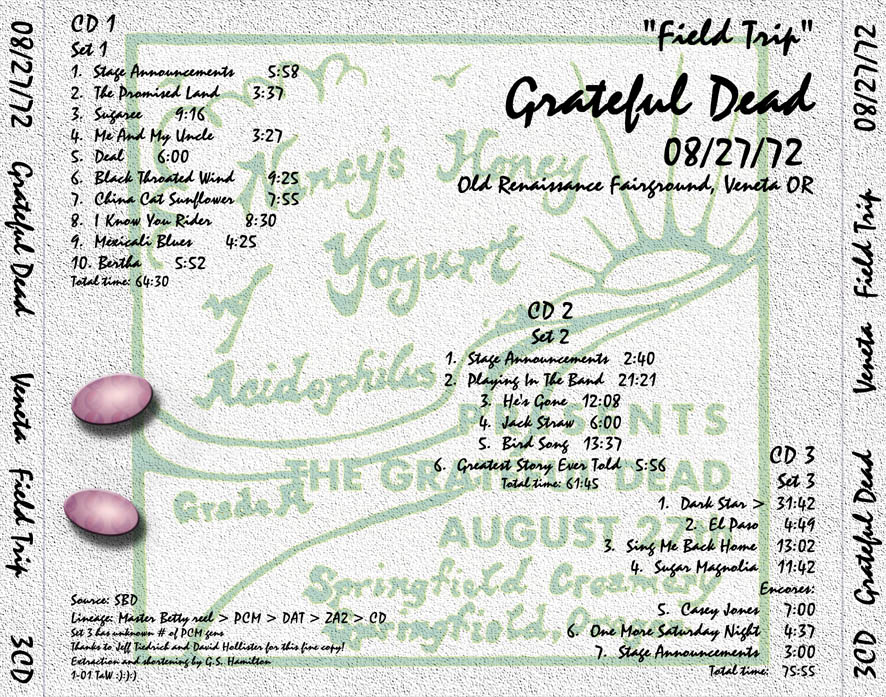 08/27/72 Grateful Dead Veneta Field Trip 3CD
CD 1
Set 1
1. Stage Announcements 5:58
2. The Promised Land 3:37
3. Sugaree 9:16
4. Me And My Uncle 3:27
5. Deal 6:00
6. Black Throated Wind 9:25
7. China Cat Sunflower 7:55
8. I Know You Rider 8:30
9. Mexicali Blues 4:25
10. Bertha 5:52
Total time: 64:30
"Field Trip"
Grateful Dead
08/27/72
Old Renaissance Fairground, Veneta OR
CD 2
Set 2
1. Stage Announcements 2:40
2. Playing In The Band 21:21
3. He's Gone 12:08
4. Jack Straw 6:00
5. Bird Song 13:37
6. Greatest Story Ever Told 5:56
Total time: 61:45
CD 3
Set 3
1. Dark Star > 31:42
2. El Paso 4:49
3. Sing Me Back Home 13:02
4. Sugar Magnolia 11:42
Encores:
5. Casey Jones 7:00
6. One More Saturday Night 4:37
7. Stage Announcements 3:00
Total time: 75:55
Source: SBD
Lineage: Master Betty reel > PCM > DAT > ZA2 > CD
Set 3 has unknown # of PCM gens
Thanks to Jeff Tiedrich and David Hollister for this fine copy!
Extraction and shortening by G.S. Hamilton
1-01 TaW :):):)
Nancy's Honey
Yogurt
w/
Acidophilus
Grade A
PRESENTS
THE GRATEFUL DEAD
AUGUST 27
Springfield Creamery
Springfield, Oregon
3CD Grateful Dead Veneta Field Trip 08/27/72